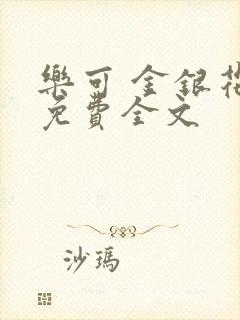 樂可 金銀花
免費全文
沙瑪